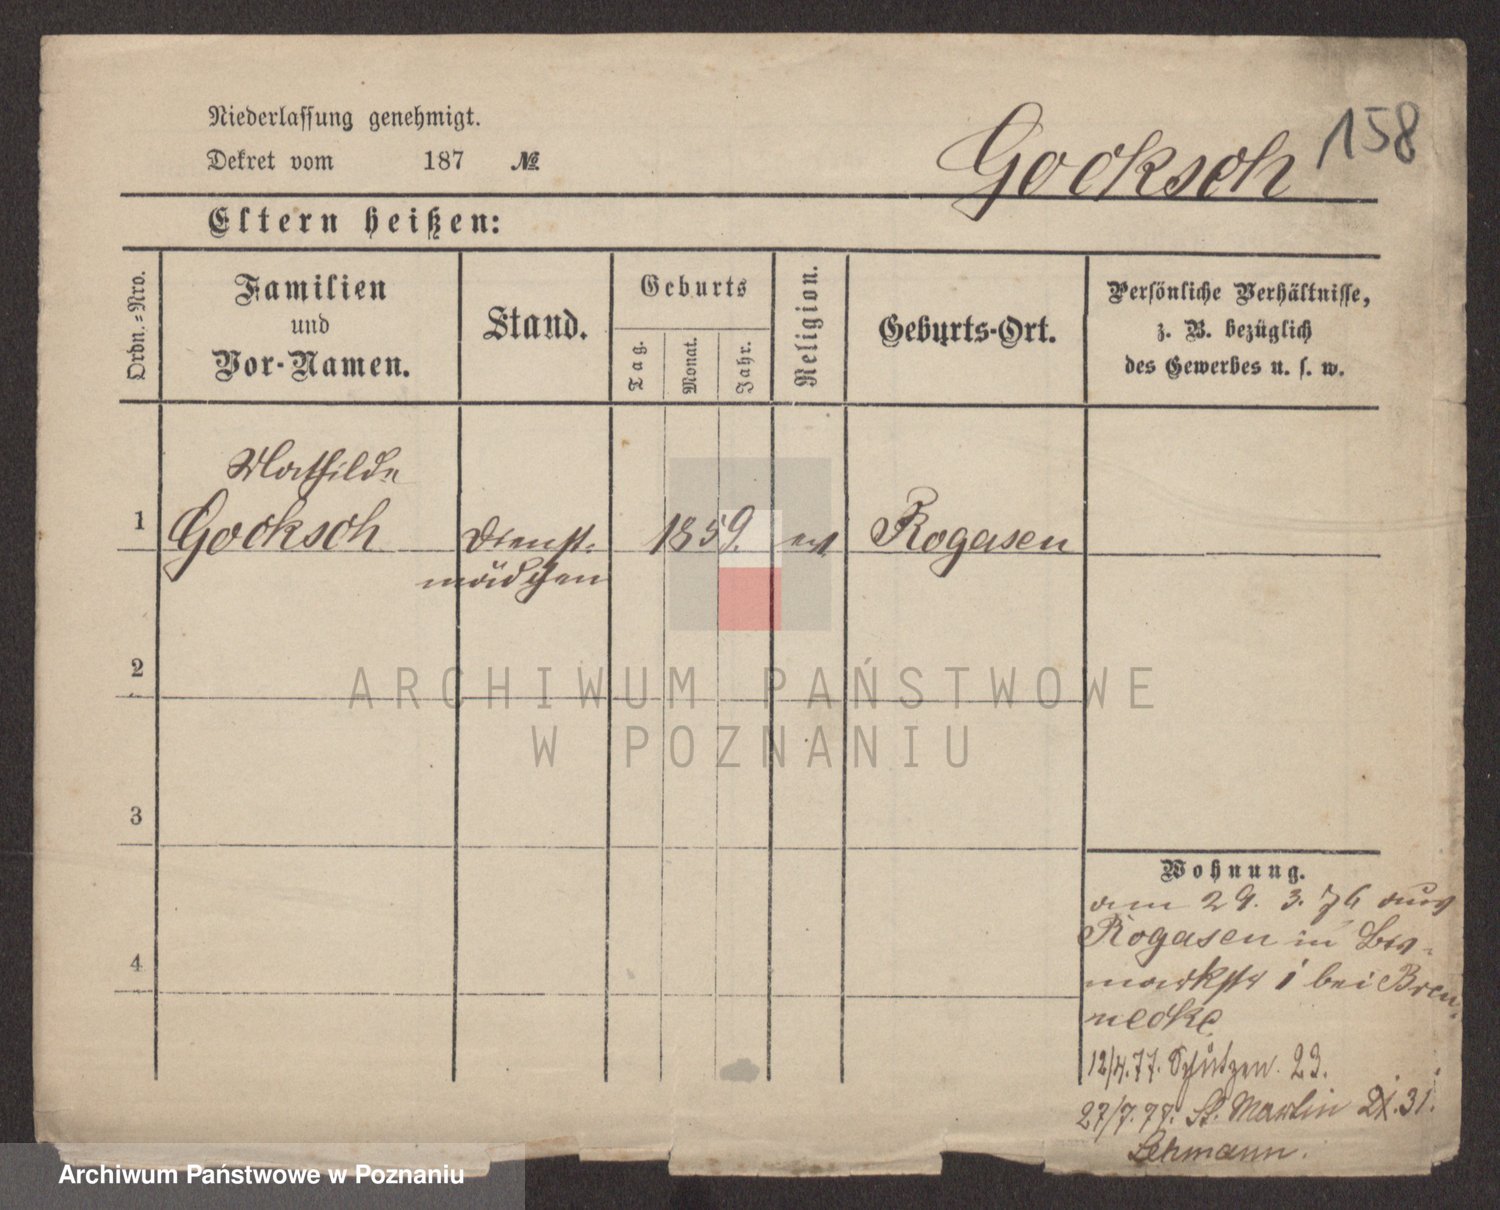 Niederlassung genehmigt.
Dekret vom 187 №
Gocksch 158
Eltern heißen:
Ordn.-Nro.
Familien
und
Vor-Namen.
Stand.
Geburts
Tag.
Monat.
Jahr.
Religion.
Geburts-Ort.
Persönliche Verhältnisse,
z. B. bezüglich
des Gewerbes u. s. w.
Mathilde
1 Gocksch Dienst- 1859. ev Rogasen
mädchen
2
ARCHIWUM PAŃSTWOWE
W POZNANIU
3
Wohnung.
am 29. 3. 76 aus
Rogasen in Bis-
markstr 1 bei Bren-
necke
12/4.77. Schützen. 23.
27/7.77. St. Martin 31.
Lehmann.
4
Archiwum Państwowe w Poznaniu